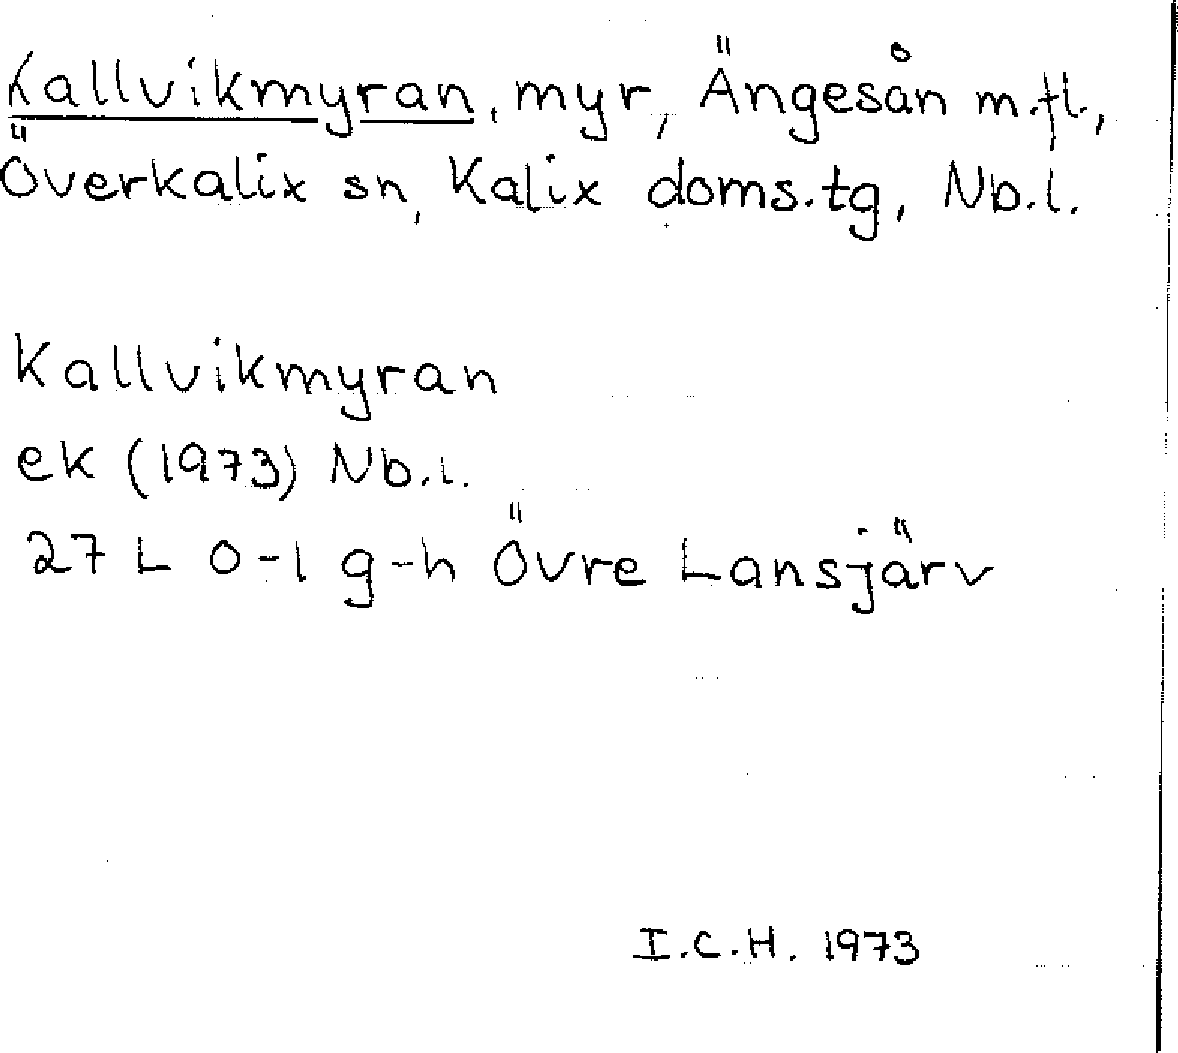 Kallvikmyran, myr, Ängesån m.fl.,
Överkalix sn, Kalix doms.tg, Nb.l.
Kallvikmyran
ek (1973) Nb.l.
27 L 0-1 g-h Övre Lansjärv
I.C.H. 1973